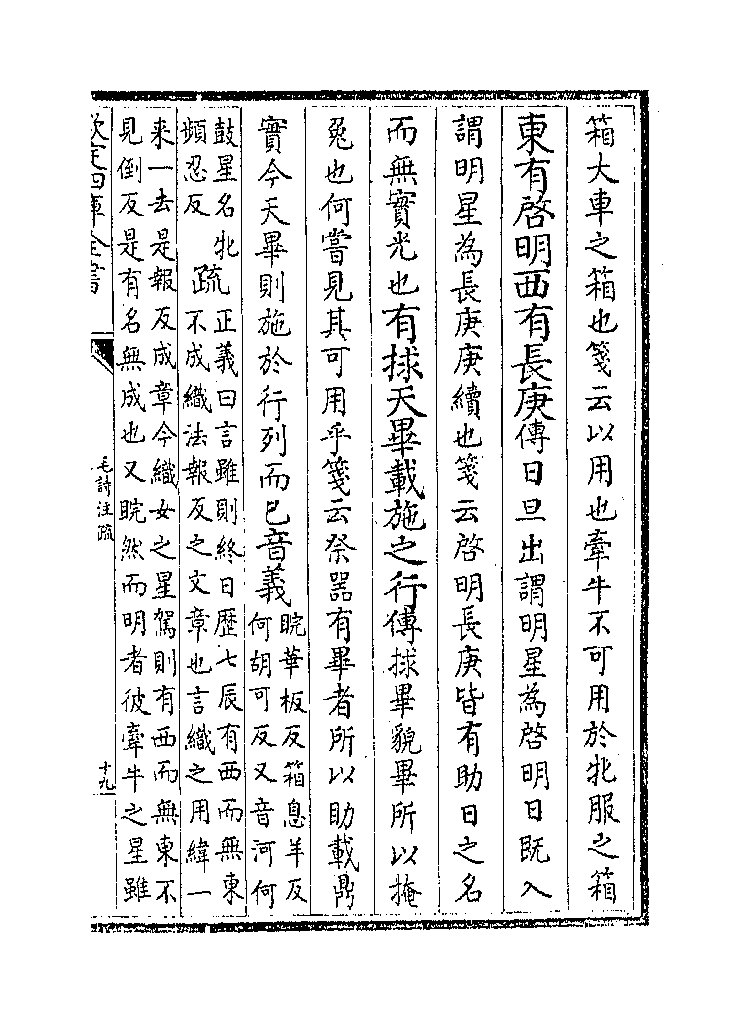 箱大車之箱也箋云以用也牽牛不可用於牝服之箱
東有啓明西有長庚傳日旦出謂明星為啓明日既入
謂明星為長庚庚續也箋云啓明長庚皆有助日之名
而無實光也有捄天畢載施之行傳捄畢貌畢所以掩
兔也何嘗見其可用乎箋云祭器有畢者所以助載鼎
實今天畢則施於行列而已音義睆華板反箱息羊反
何胡可反又音河何
鼓星名牝
頻忍反
疏正義曰言雖則終日歴七辰有西而無東
不成織法報反之文章也言織之用緯一
来一去是報反成章今織女之星駕則有西而無東不
見倒反是有名無成也又睆然而明者彼牽牛之星雖
欽定四庫全書
毛詩注疏
十九